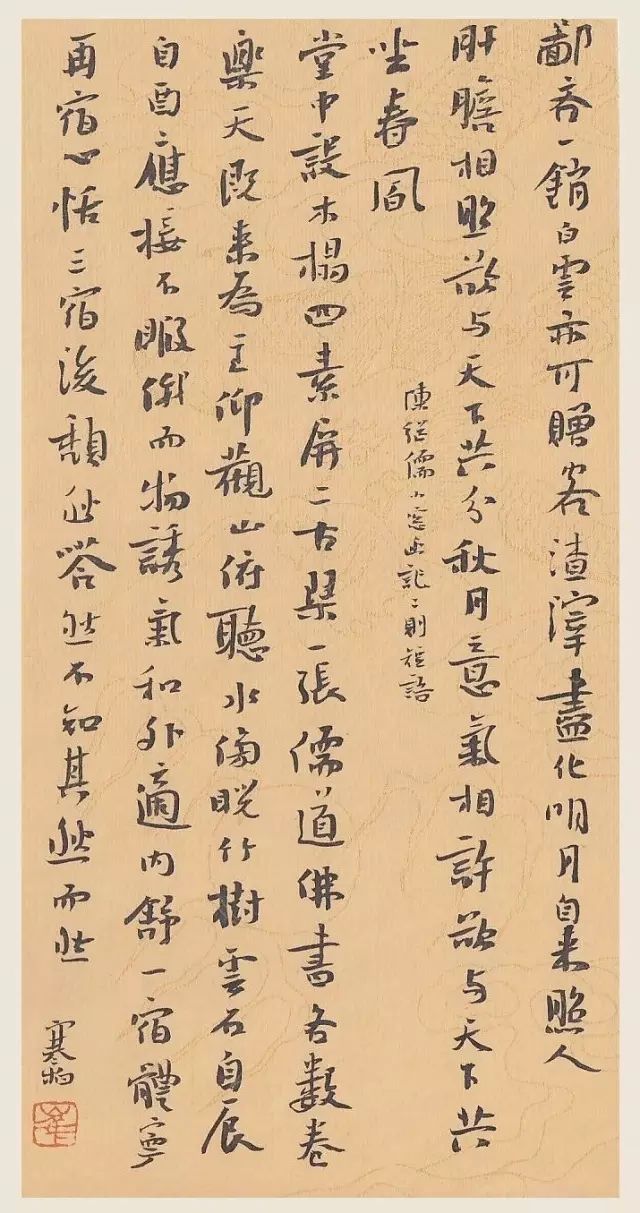 鄙吝一銷白雲亦可贈客渣滓盡化明月自來照人
肝膽相照欲与天下共分秋月意氣相許欲与天下共
坐春風
陳繼儒小窗幽記二則短語
堂中設木榻四素屏二古琴一張儒道佛書各數卷
樂天既來為主仰觀山俯聽水傍睨竹樹雲石自辰
自酉應接不暇俄而物誘氣和外適内舒一宿體寧
再宿心恬三宿後頹然嗒然不知其然而然